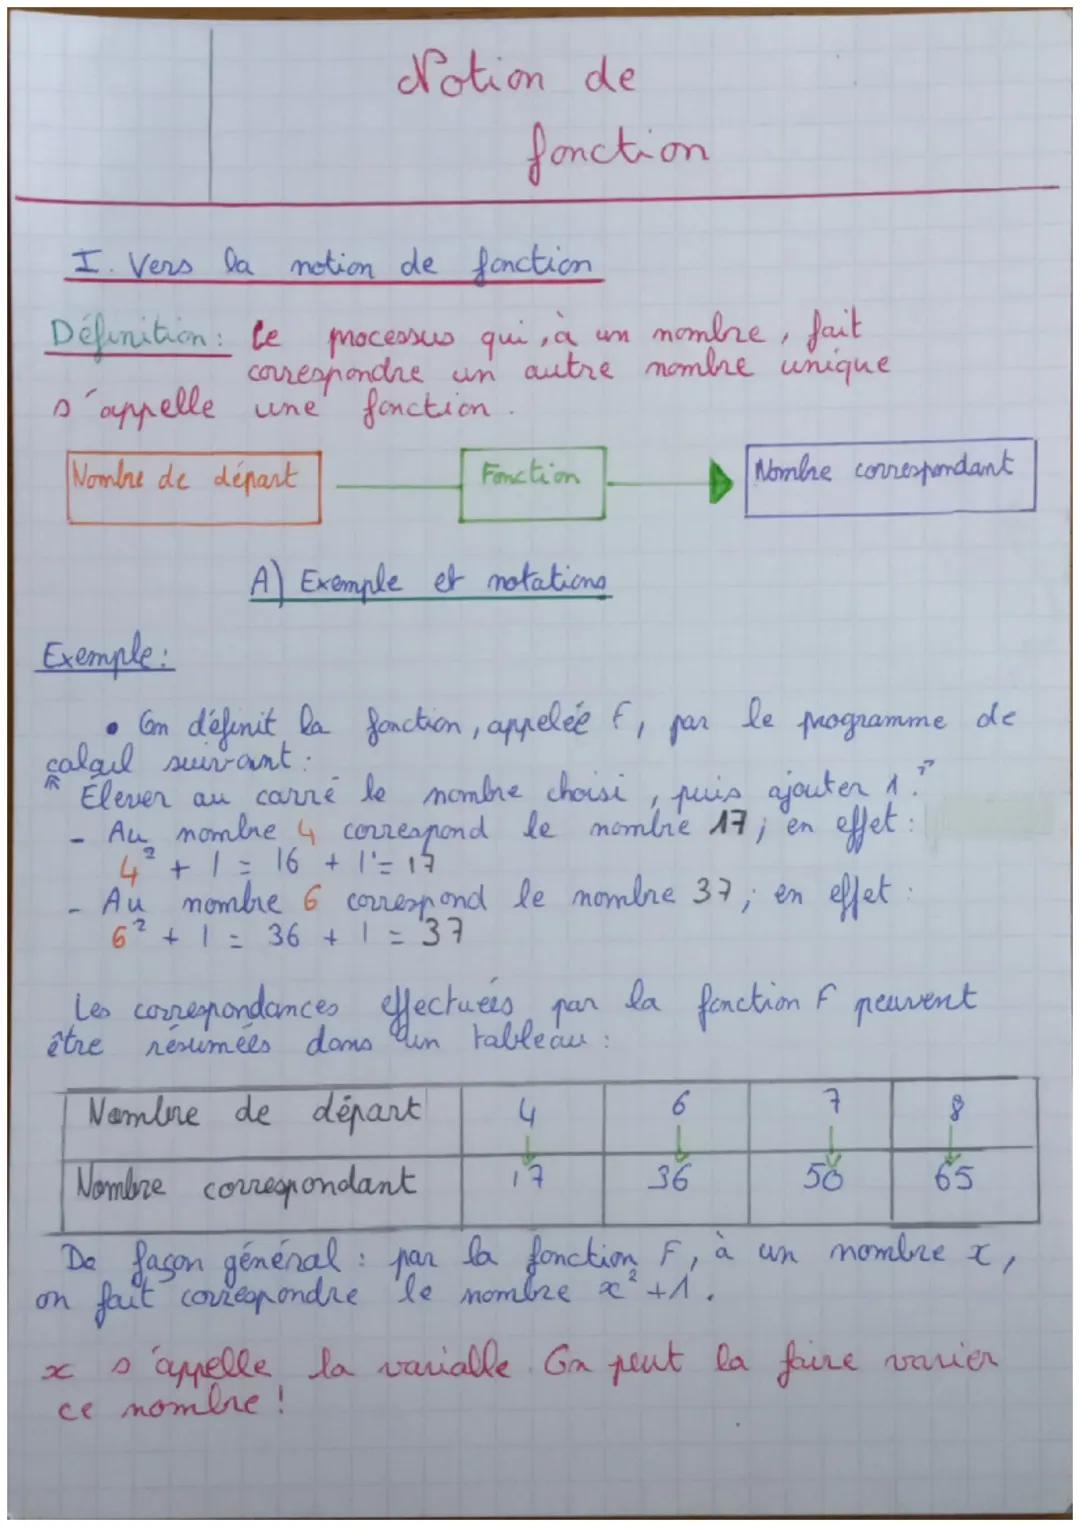 Notion de
fonction
I. Vers la notion de fonction
Définition : Le processus qui, à un nombre, fait
correspondre un autre nombre unique
s'appelle une fonction.
Nombre de départ Fonction Nombre correspondant
A) Exemple et notations
Exemple :
• On définit la fonction, appelée F, par le programme de
calcul suivant :
"Élever au carré le nombre choisi, puis ajouter 1."
- Au nombre 4 correspond le nombre 17 ; en effet :
4² + 1 = 16 + 1 = 17
- Au nombre 6 correspond le nombre 37 ; en effet :
6² + 1 = 36 + 1 = 37
Les correspondances effectuées par la fonction F peuvent
être résumées dans un tableau :
Nombre de départ 4 6 7 8
Nombre correspondant 17 36 50 65
De façon général : par la fonction F, à un nombre x,
on fait correspondre le nombre x² + 1.
x s'appelle la varialle. On peut la faire varier
ce nombre !